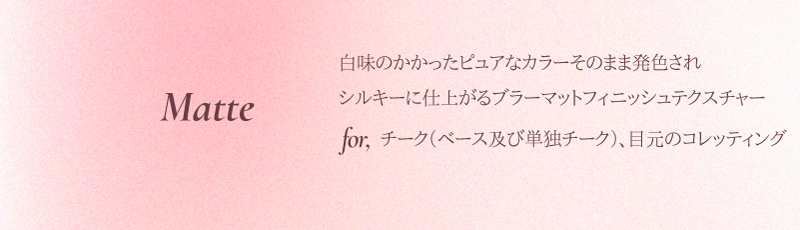 Matte
白味のかかったピュアなカラーそのまま発色され
シルキーに仕上がるブラーマットフィニッシュテクスチャー
for, チーク(ベース及び単独チーク)、目元のコレッティング